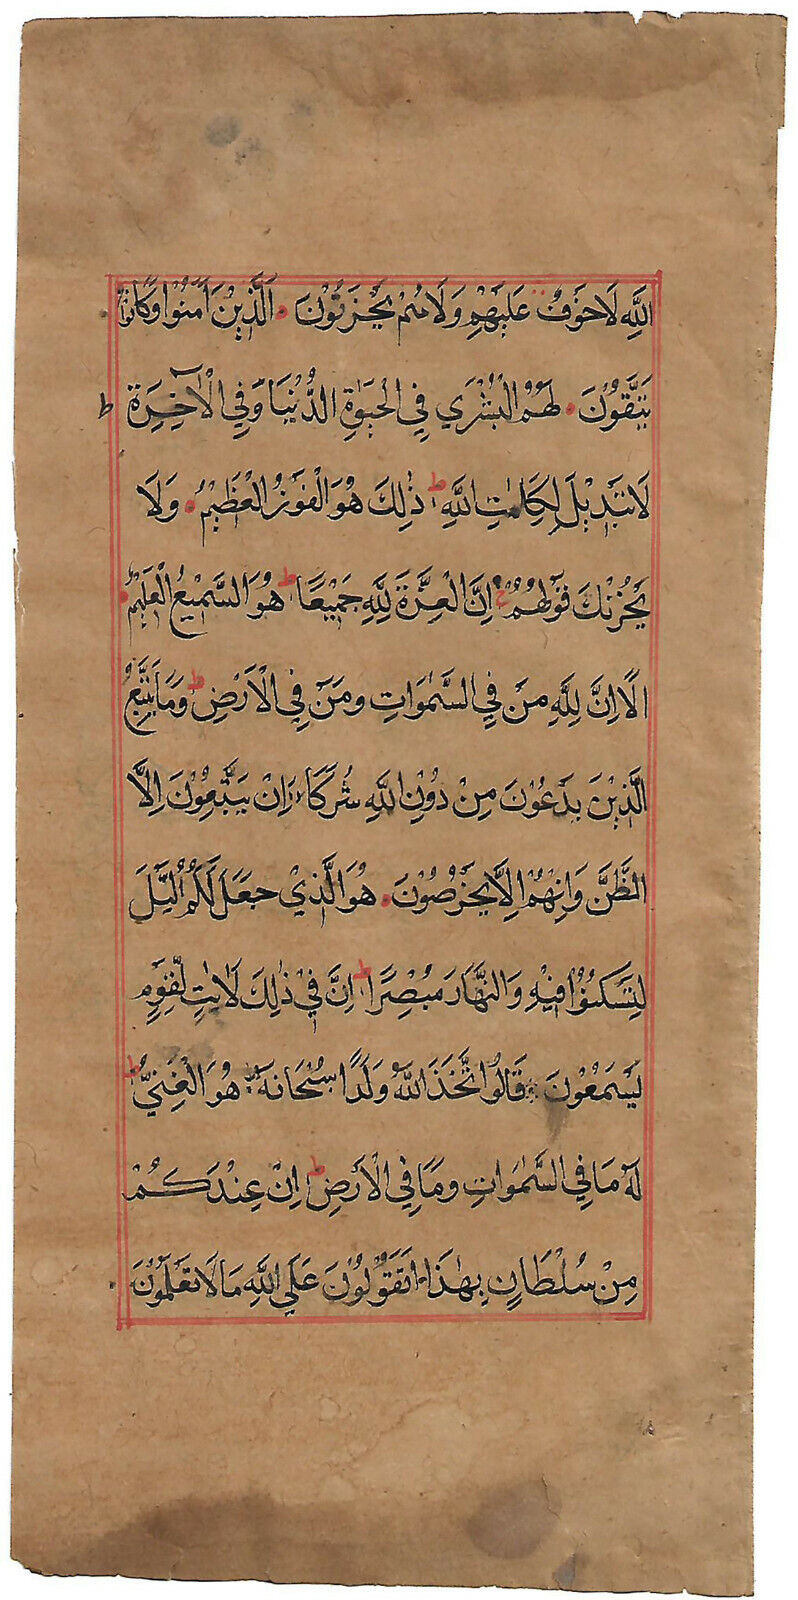 اللَّهِ لَا خَوْفٌ عَلَيْهِمْ وَلَا هُمْ يَحْزَنُونَ الَّذِينَ اٰمَنُوْا وَكَانُوْا
يَتَّقُوْنَ لَهُمُ الْبُشْرٰي فِي الْحَيٰوةِ الدُّنْيَا وَفِي الْاٰخِرَةِ ط
لَا تَبْدِيْلَ لِكَلِمٰتِ اللّٰهِ ط ذٰلِكَ هُوَ الْفَوْزُ الْعَظِيْمُ وَلَا
يَحْزُنْكَ قَوْلُهُمْ اِنَّ الْعِزَّةَ لِلّٰهِ جَمِيْعًا ط هُوَ السَّمِيْعُ الْعَلِيْمُ
اَلَا اِنَّ لِلّٰهِ مَنْ فِي السَّمٰوَاتِ وَمَنْ فِي الْاَرْضِ ط وَمَا يَتَّبِعُ
الَّذِيْنَ يَدْعُوْنَ مِنْ دُوْنِ اللّٰهِ شُرَكَاءَ اِنْ يَتَّبِعُوْنَ اِلَّا
الظَّنَّ وَاِنْ هُمْ اِلَّا يَخْرُصُوْنَ هُوَ الَّذِيْ جَعَلَ لَكُمُ الَّيْلَ
لِتَسْكُنُوْا فِيْهِ وَالنَّهَارَ مُبْصِرًا ط اِنَّ فِيْ ذٰلِكَ لَاٰيٰتٍ لِّقَوْمٍ
يَسْمَعُوْنَ قَالُوا اتَّخَذَ اللّٰهُ وَلَدًا سُبْحَانَهٗ هُوَ الْغَنِيُّ ط
لَهٗ مَا فِي السَّمٰوَاتِ وَمَا فِي الْاَرْضِ ط اِنْ عِنْدَكُمْ
مِنْ سُلْطَانٍ بِهٰذَا اَتَقُوْلُوْنَ عَلَي اللّٰهِ مَا لَا تَعْلَمُوْنَ